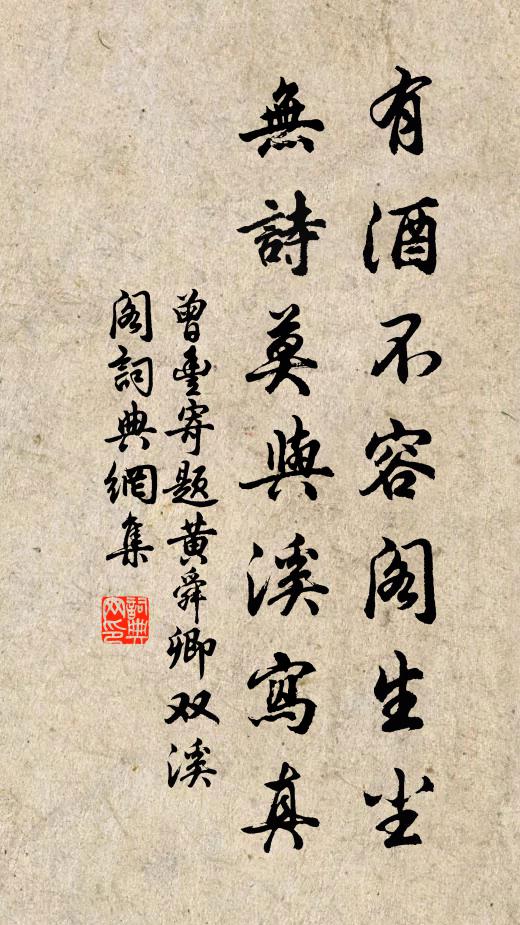 有酒不容阁生尘
無詩莫與溪寫真
曾豊寄题黄舜卿双溪
阁詞典網集
詞典网印